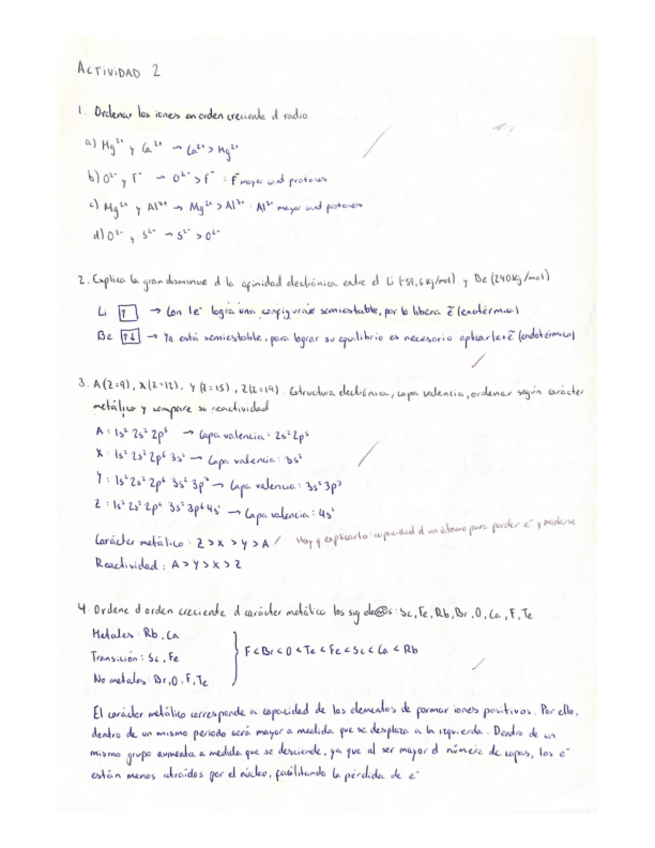 ACTIVIDAD 2
1. Ordenar los iones en orden creciente d radio
a) Mg²⁺ y Ca²⁺ → Ca²⁺ > Mg²⁺
b) O²⁻ y F⁻ → O²⁻ > F⁻ : F⁻ mayor cand protones
c) Mg²⁺ y Al³⁺ → Mg²⁺ > Al³⁺ : Al³⁺ mayor cand protones
d) O²⁻ y S²⁻ → S²⁻ > O²⁻
2. Explica la gran disminuc d la afinidad electrónica entre el Li (-59,6 kj/mol) y Be (240 kj/mol)
Li ↑ → Con 1e⁻ logra una configuración semiestable, por lo libera E (exotérmico)
Be ↑↓ → Ya está semiestable, para lograr su equilibrio es necesario aplicarle E (endotérmico)
3. A (Z=9), X (Z=12), Y (Z=15), Z (Z=19). Estructura electrónica, capa valencia, ordenar según carácter
metálico y compare su reactividad
A : 1s² 2s² 2p⁵ → Capa valencia : 2s² 2p⁵
X : 1s² 2s² 2p⁶ 3s² → Capa valencia : 3s²
Y : 1s² 2s² 2p⁶ 3s² 3p³ → Capa valencia : 3s² 3p³
Z : 1s² 2s² 2p⁶ 3s² 3p⁶ 4s¹ → Capa valencia : 4s¹
Carácter metálico : Z > X > Y > A / Hay q explicarlo capacidad d un átomo para perder e⁻ y oxidarse
Reactividad : A > Y > X > Z
4. Ordene d orden creciente d carácter metálico los sig : Sc, Fe, Rb, Br, O, Ca, F, Te
Metales : Rb, Ca
Transición : Sc, Fe
No metales : Br, O, F, Te
F < Br < O < Te < Fe < Sc < Ca < Rb
El carácter metálico corresponde a capacidad de los elementos de formar iones positivos. Por ello,
dentro de un mismo periodo será mayor a medida que se desplaza a la izquierda. Dentro de un
mismo grupo aumenta a medida que se desciende, ya que al ser mayor el número de capas, los e⁻
están menos atraídos por el núcleo, facilitando la pérdida de e⁻